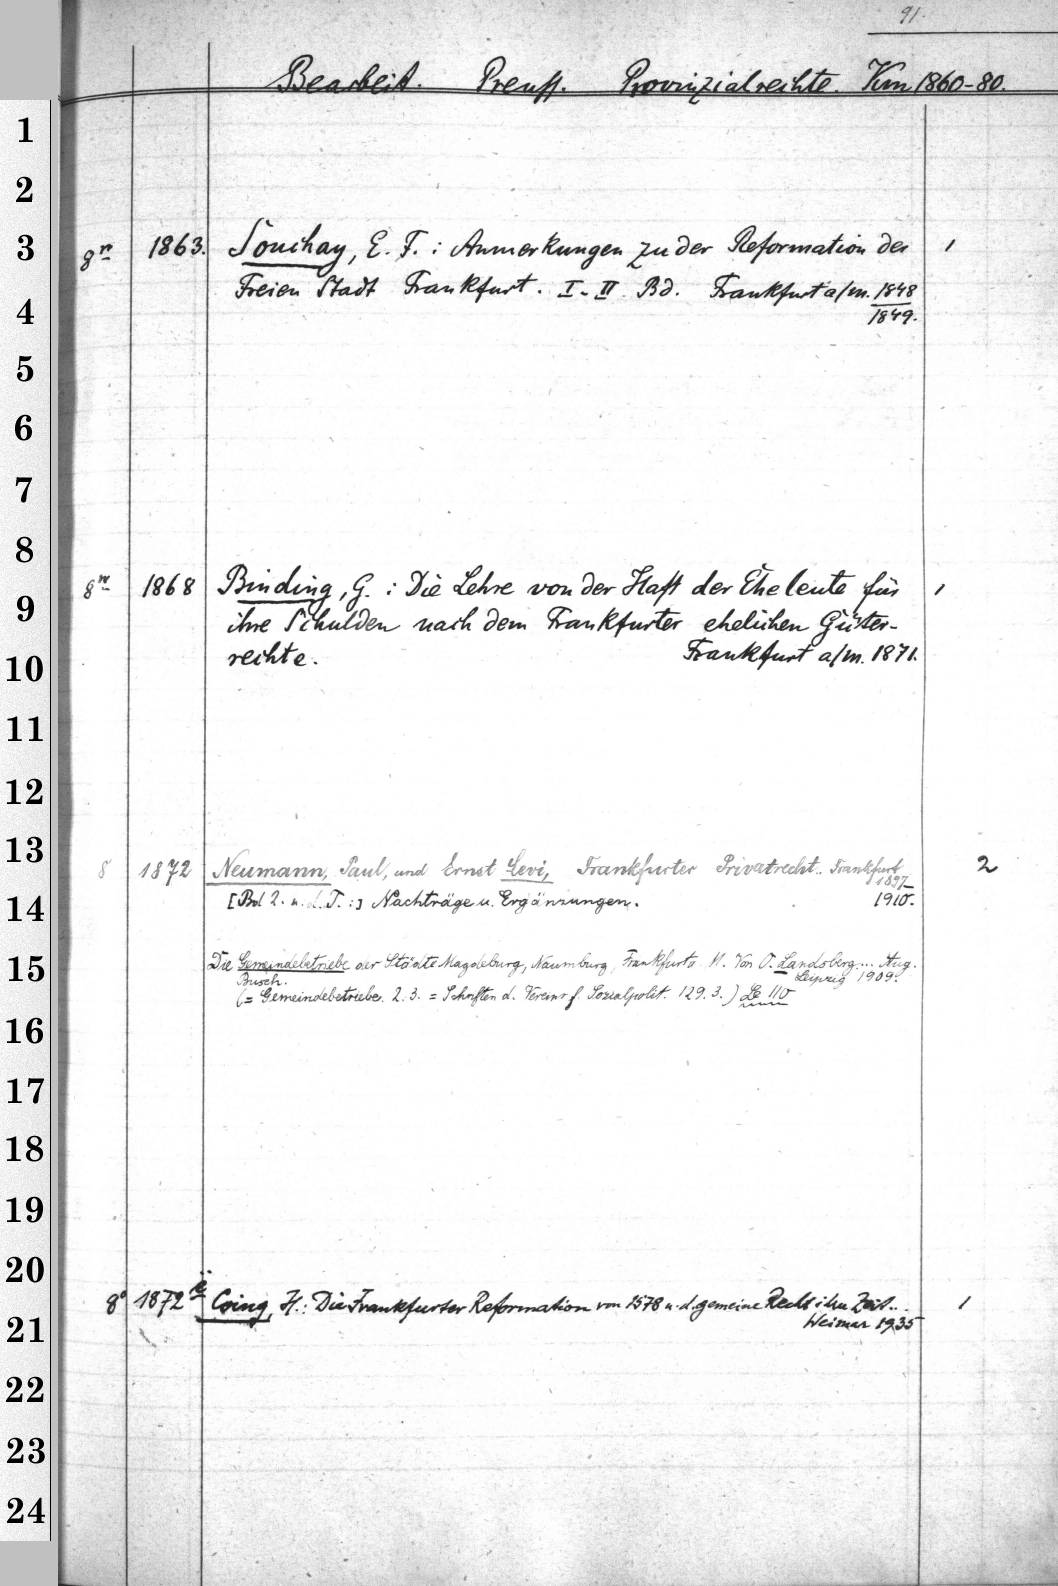 91.
Bearbeit. Preuss. Provinzialrechte. Km 1860-80.
8º 1863. Souchay, E. F.: Anmerkungen zu der Reformation der 1
Freien Stadt Frankfurt. I-II Bd. Frankfurt a/m. 1848
1849.
8º 1868 Binding, G.: Die Lehre von der Haft der Eheleute für 1
ihre Schulden nach dem Frankfurter ehelichen Güter-
rechte. Frankfurt a/m. 1871.
8 1872 Neumann, Paul, und Ernst Levi, Frankfurter Privatrecht.. Frankfurt 2
1897
[Bd 2. u. d. T.:] Nachträge u. Ergänzungen. 1910.
Die Gemeindebetriebe der Städte Magdeburg, Naumburg, Frankfurt a. M. Von O. Landsberg.... Aug.
Busch. Leipzig 1909.
(= Gemeindebetriebe. 2. 3. = Schriften d. Vereins f. Sozialpolit. 129. 3.) Le 110
8º 1872 ë Coing, H.: Die Frankfurter Reformation von 1578 u. d. gemeine Recht ihrer Zeit... 1
Weimar 1935
1
2
3
4
5
6
7
8
9
10
11
12
13
14
15
16
17
18
19
20
21
22
23
24